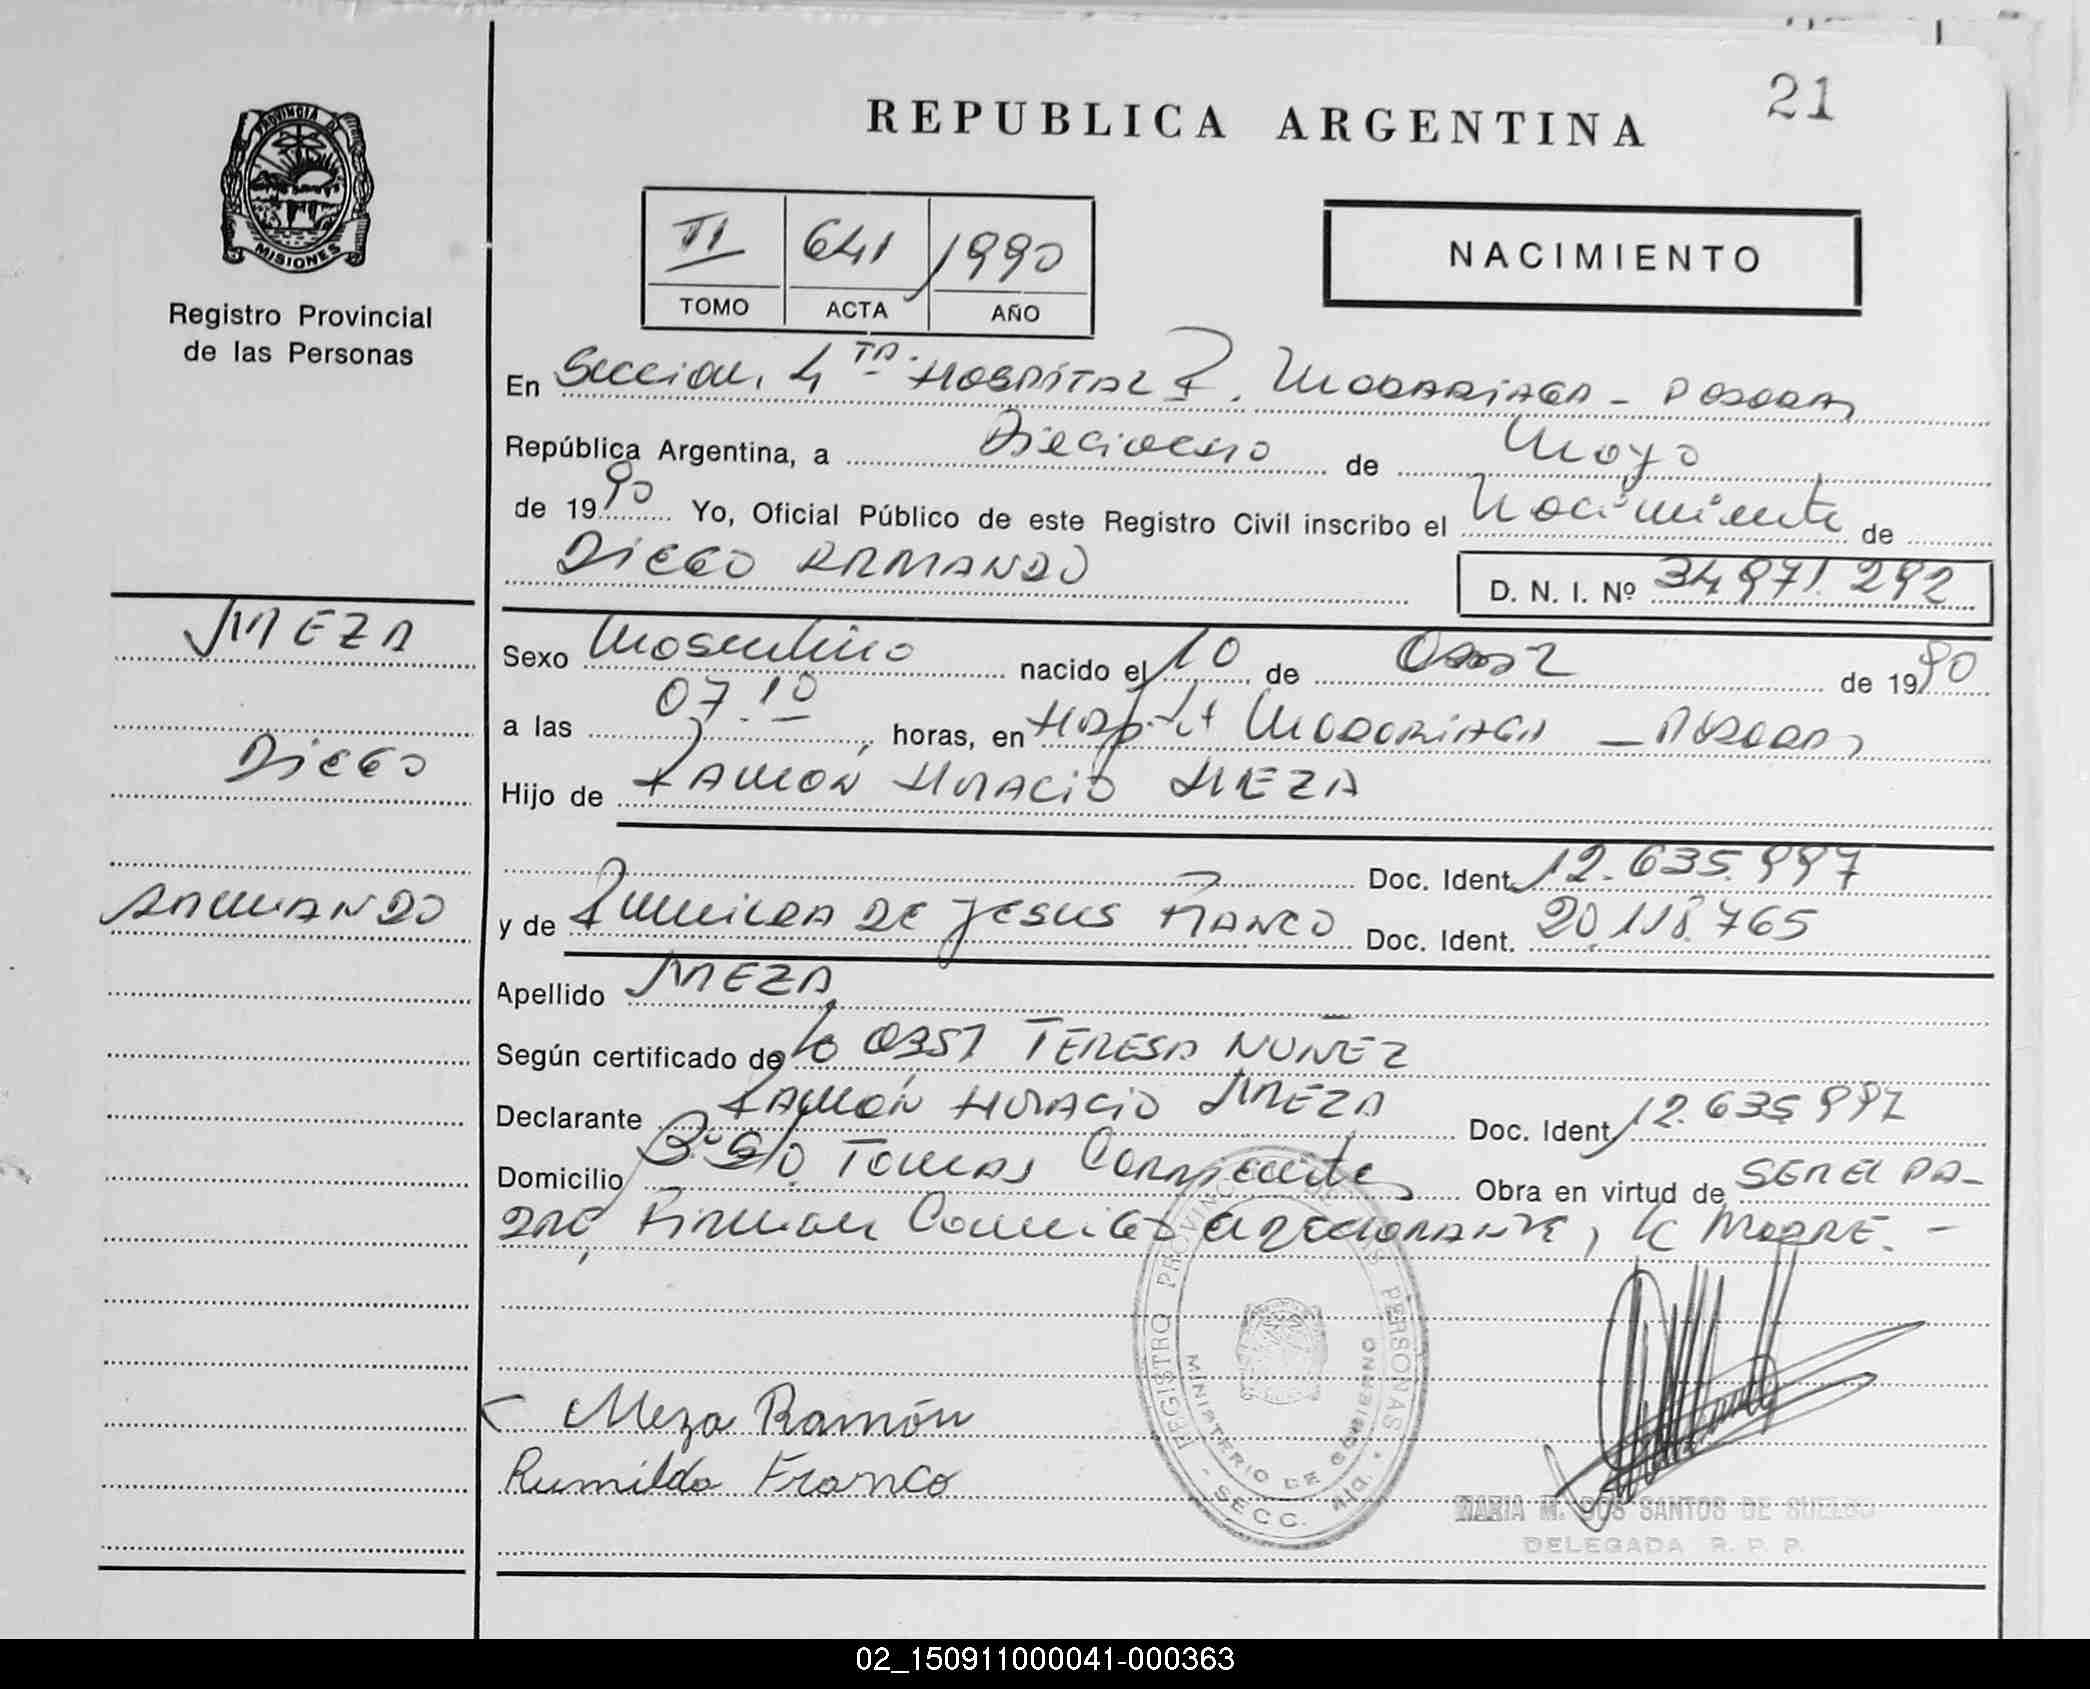 21
REPUBLICA ARGENTINA
PROVINCIA DE
MISIONES
Registro Provincial
de las Personas
II 641 1990
TOMO ACTA AÑO
NACIMIENTO
En Seccion 4TA. HOSPITAL R. MADARIAGA - POSADAS
República Argentina, a Dieciocho de Mayo
de 1990 Yo, Oficial Público de este Registro Civil inscribo el Nacimiento de
DIEGO ARMANDO
D. N. I. Nº 34.971.292
MEZA
DIEGO
ARMANDO
Sexo Masculino nacido el 10 de de 1990
a las 07.10 horas, en Hospital MADARIAGA - POSADAS
Hijo de RAMÓN HORACIO MEZA
Doc. Ident. 12.635.997
y de RUMILDA DE JESUS FRANCO Doc. Ident. 20.118.765
Apellido MEZA
Según certificado de la OBST TERESA NUÑEZ
Declarante RAMÓN HORACIO MEZA Doc. Ident. 12.635.997
Domicilio Bº TOMAS Obra en virtud de SER EL PA-
DRE, FIRMAN CON EL DECLARANTE, LA MADRE. -
REGISTRO PROVINCIAL DE LAS PERSONAS
MINISTERIO DE GOBIERNO
SECC.
Meza Ramón
Rumilda Franco
MARIA M. DOS SANTOS DE
DELEGADA R. P. P.
02_150911000041-000363